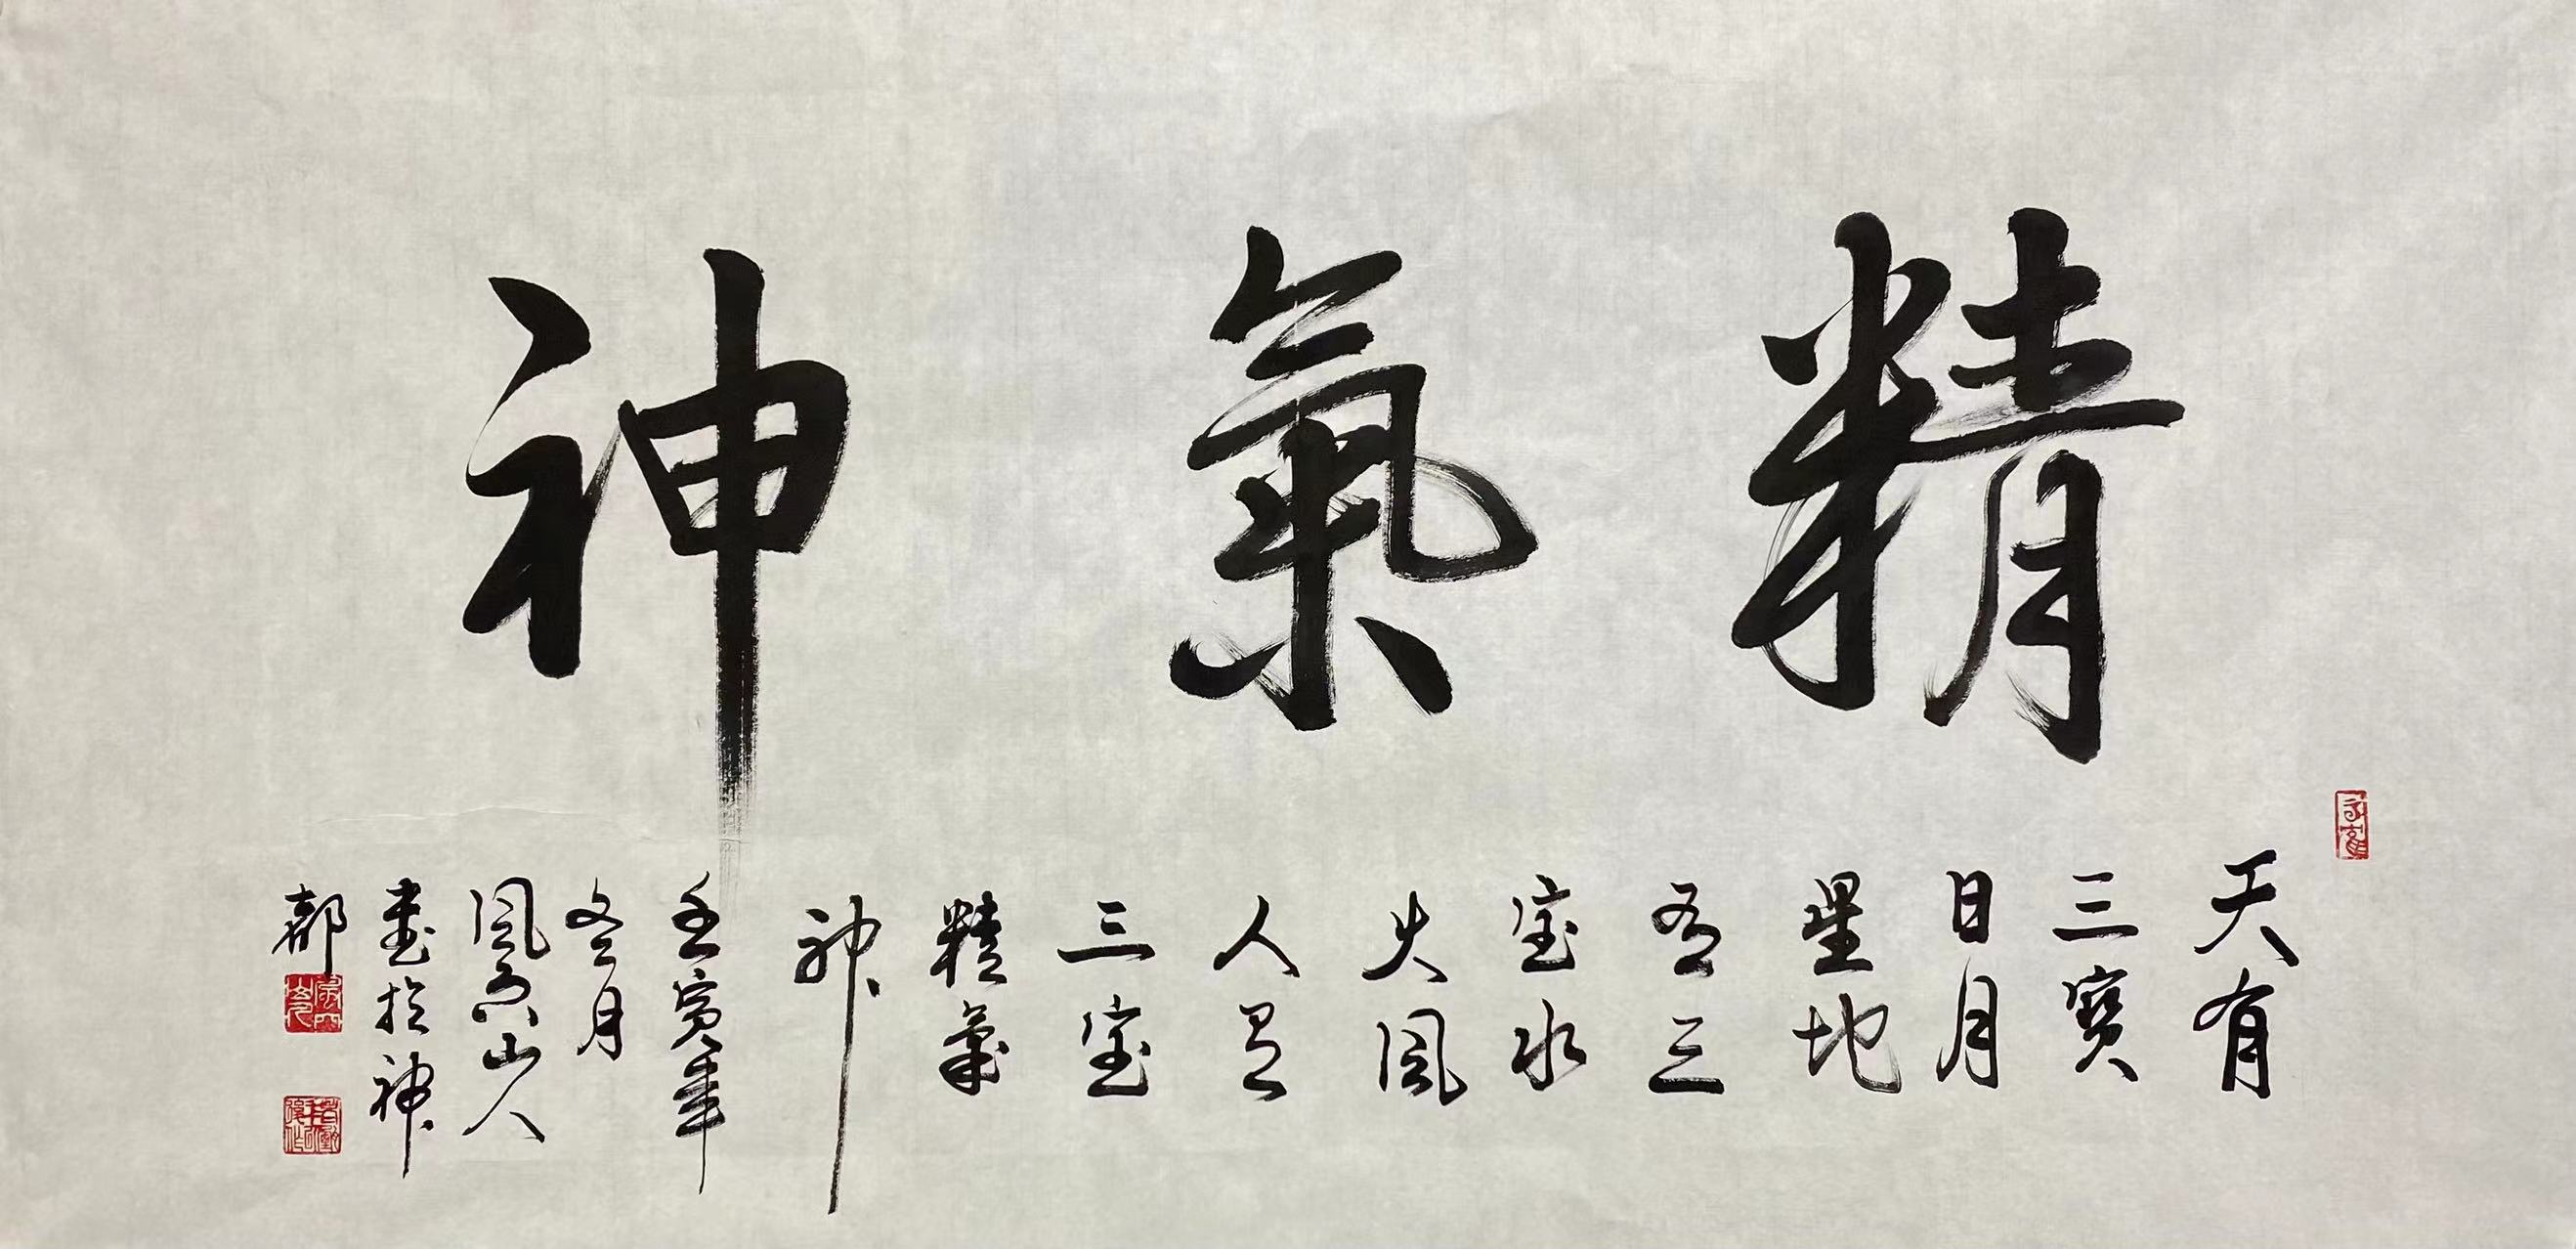 精氣神
天有
三寶
日月
星地
有三
宝水
火風
人有
三宝
精氣
神
壬寅年
冬月
風穴山人
書於神
都